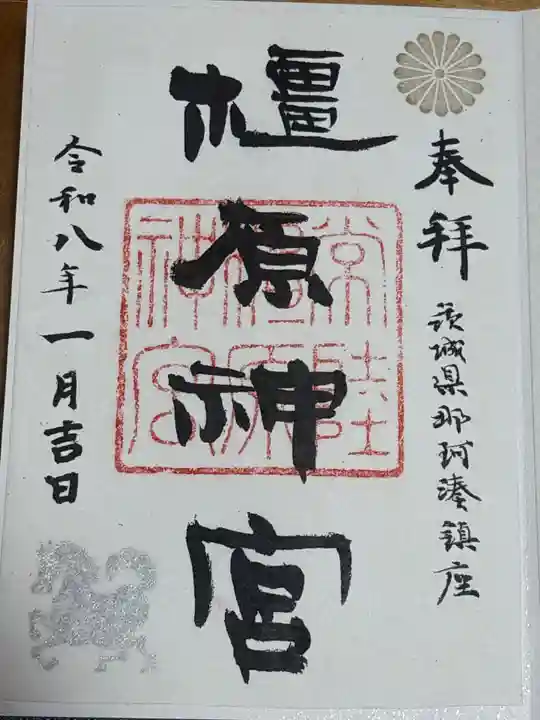 奉拝
茨城県那珂湊鎮座
橿原神宮
常陸
橿原
神宮
令和八年一月吉日